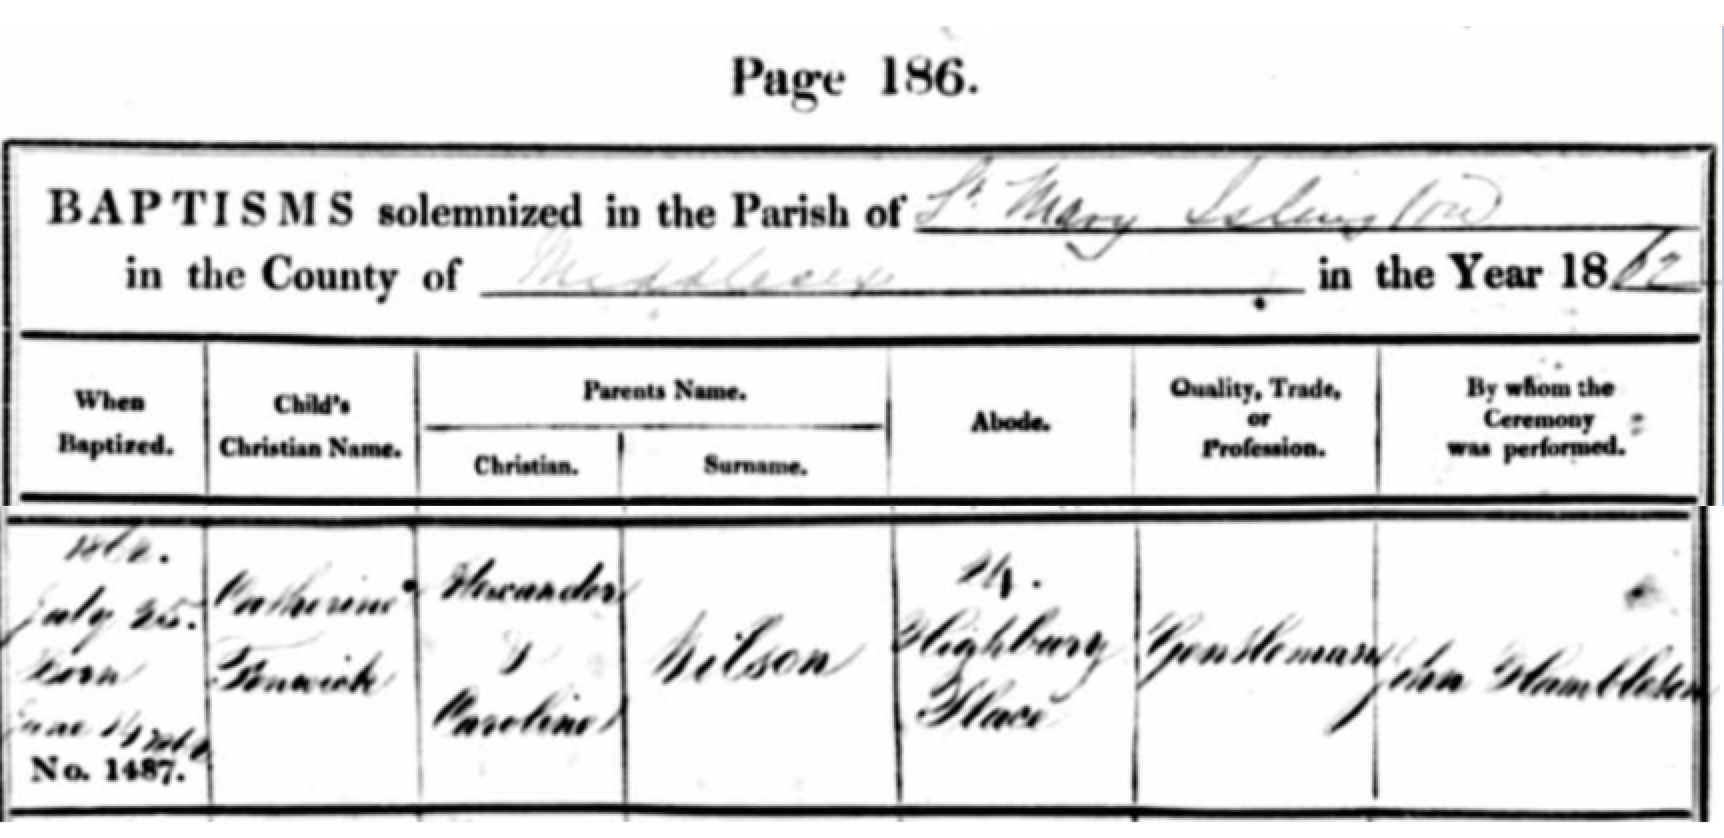 Page 186.
BAPTISMS solemnized in the Parish of St. Mary Islington
in the County of Middlesex in the Year 1862
When
Baptized.
Child's
Christian Name.
Parents Name.
Christian.
Surname.
Abode.
Quality, Trade,
or
Profession.
By whom the
Ceremony
was performed.
1862.
July 25.
Born
June
No. 1487.
Catherine
Fenwick
Alexander
&
Caroline
Wilson
Highbury
Place
Gentleman
John Hambleton